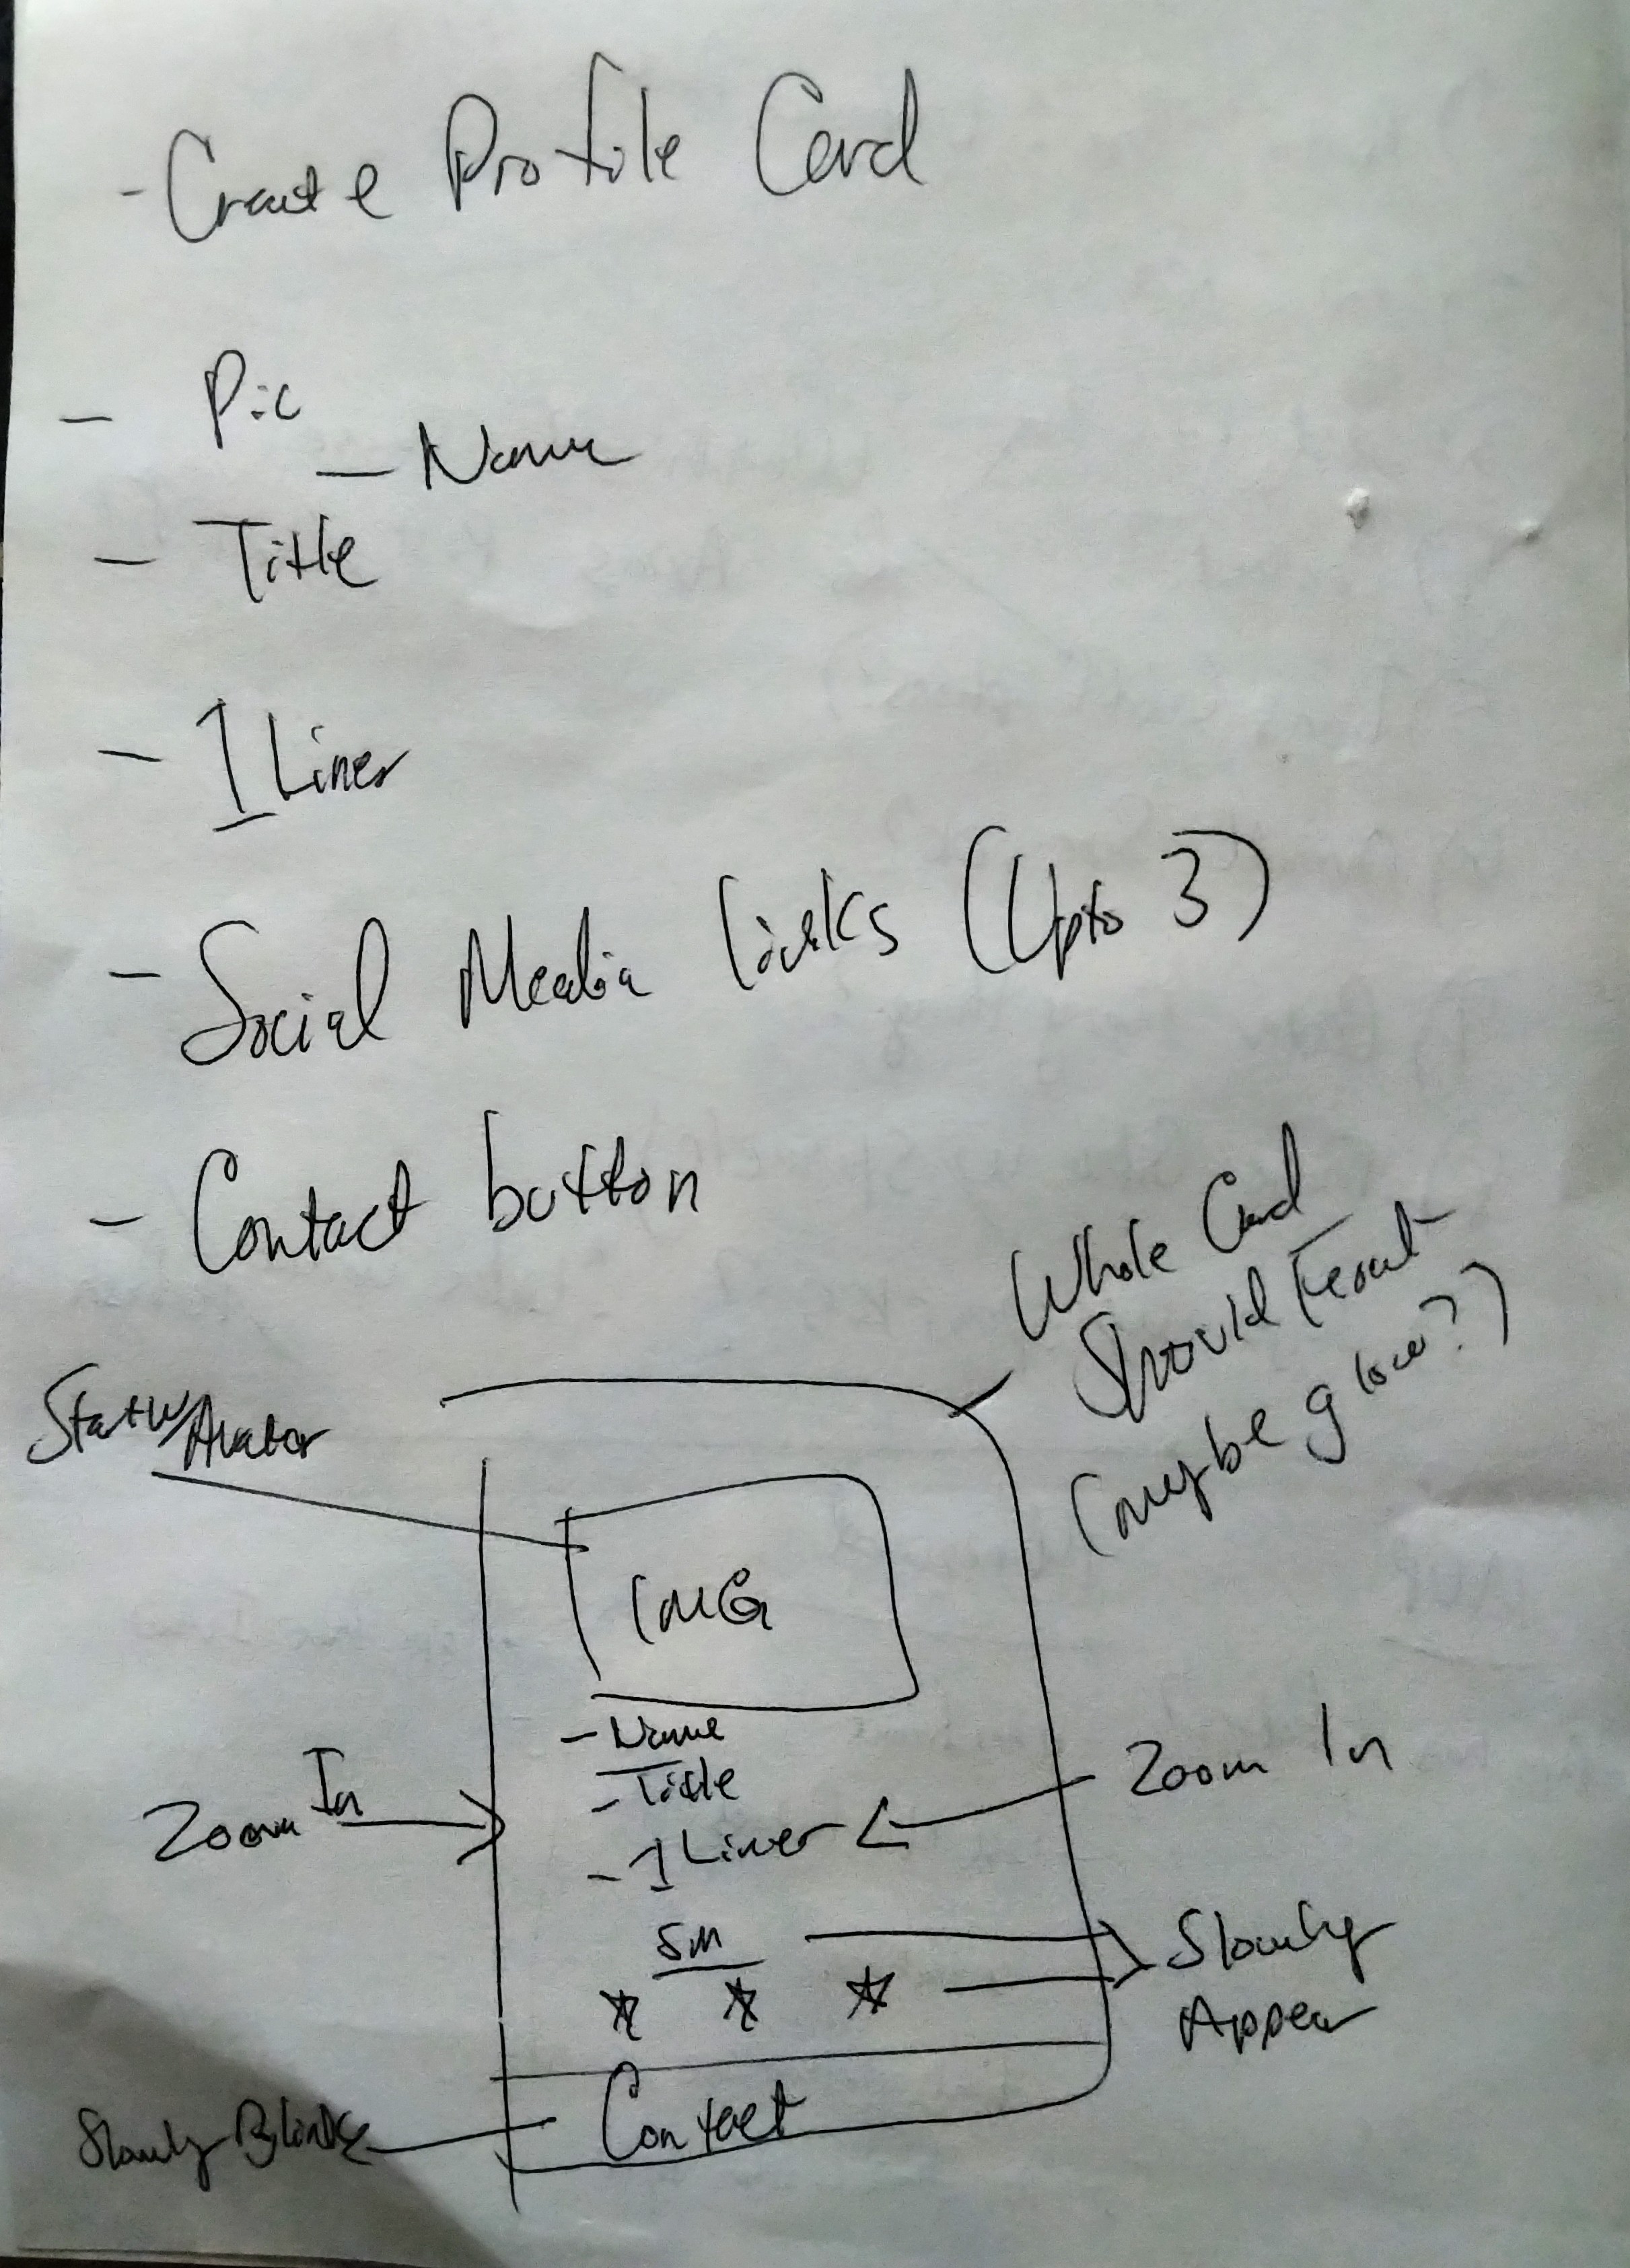 - Create Profile Card
- Pic
- Name
- Title
- 1 Liner
- Social Media links (Upto 3)
- Contact button
Whole Card
Should
(maybe glow?)
Status/Avatar
IMG
- Name
- Title
- 1 Liner
Zoom In
Zoom In
SM
Slowly
Appear
Contact
Slowly Blink